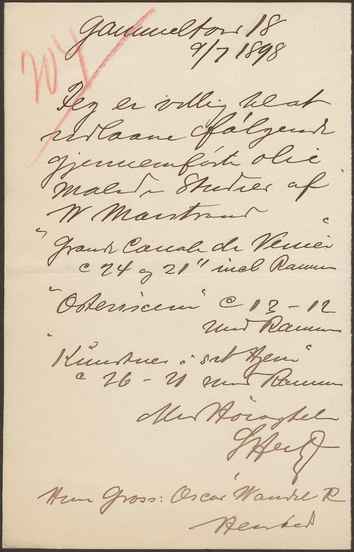 Gammeltorv 18
9/7 1898
204
Jeg er villig til at
udlaane følgende
gjennemførte olie
malede Studier af
W Marstrand
"Grande Canale de Venise"
c 24 og 21" incl Ramme
"Osteriscene" c 13-12
med Ramme
"Kunstner i sit Hjem"
c 26-21 med Ramme
Med Høiagtelse
Herr Gross: Oscar Wandel R